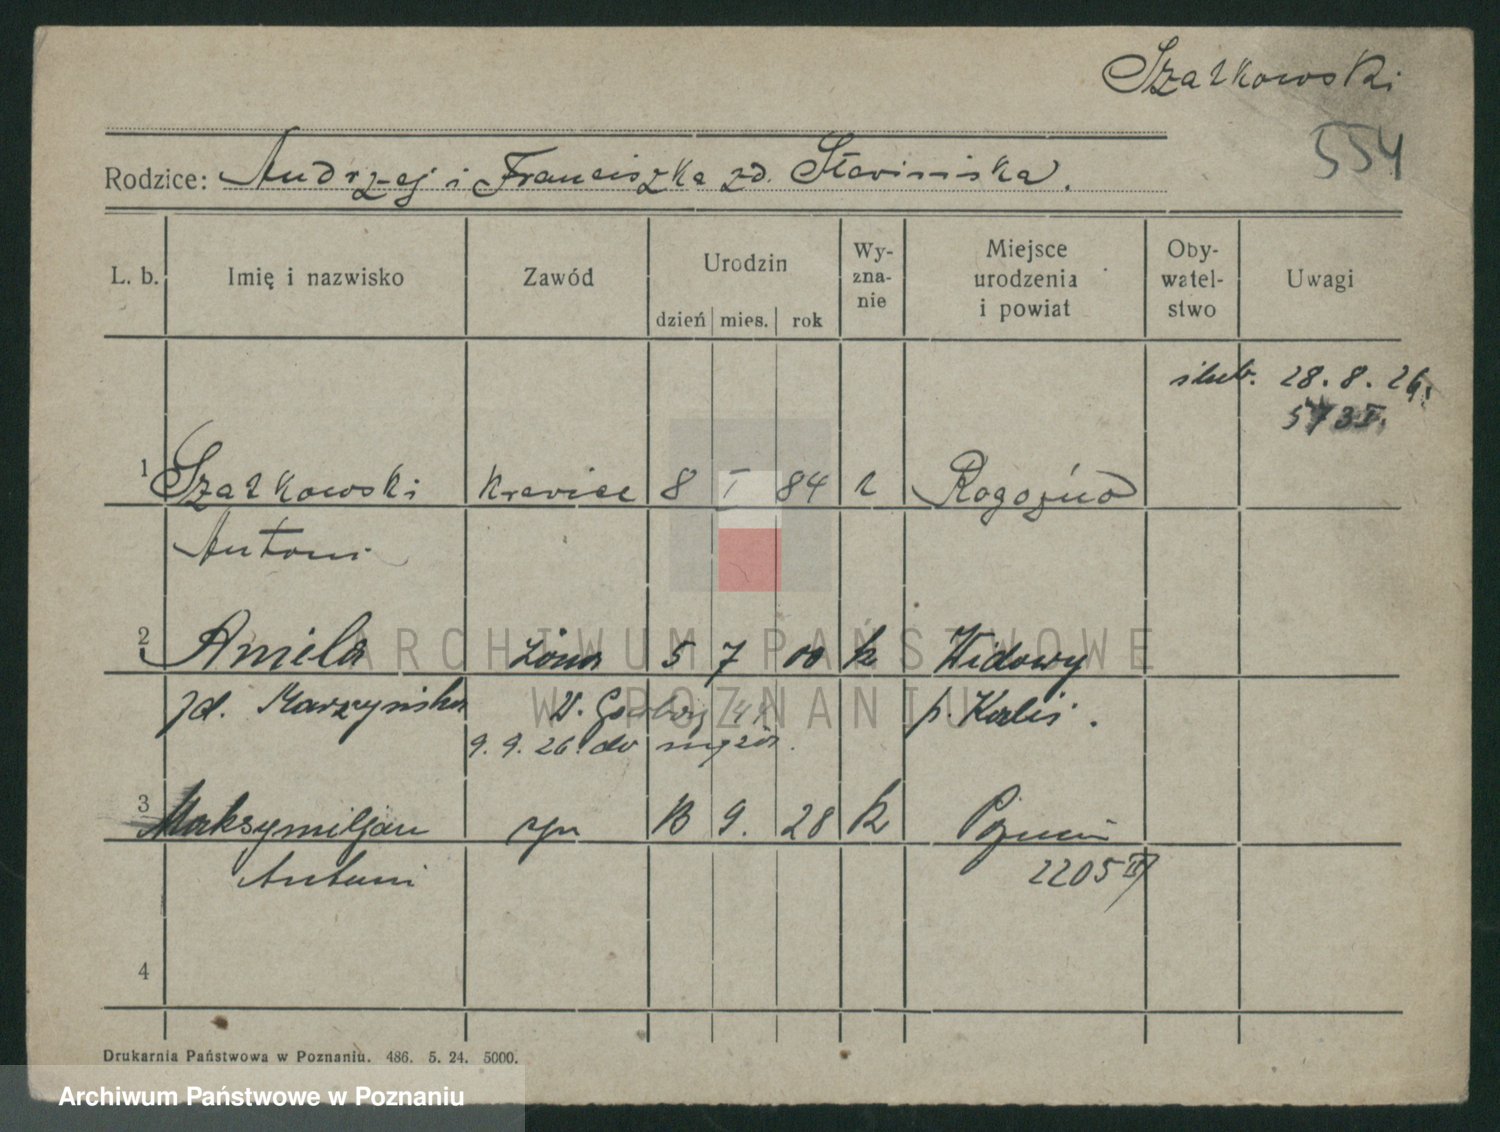 Szatkowski
554
Rodzice: Andrzej i Franciszka zd. Sławińska.
L. b. Imię i nazwisko Zawód Urodzin dzień mies. rok Wy-zna-nie Miejsce urodzenia i powiat Oby-watel-stwo Uwagi
ślub. 28. 8. 26.
573 I.
1 Szatkowski krawiec 8 I 84 r Rogoźno
Antoni
2 Aniela żona 5 7 00 k Widowy
zd. Marzyńska W. Garbary 44 p. Kalisz.
9. 9. 26. do męża.
3 Maksymiljan syn 13 9. 28 k Poznań
Antoni 2205 II/
4
Drukarnia Państwowa w Poznaniu. 486. 5. 24. 5000.
ARCHIWUM PAŃSTWOWE
W POZNANIU
Archiwum Państwowe w Poznaniu